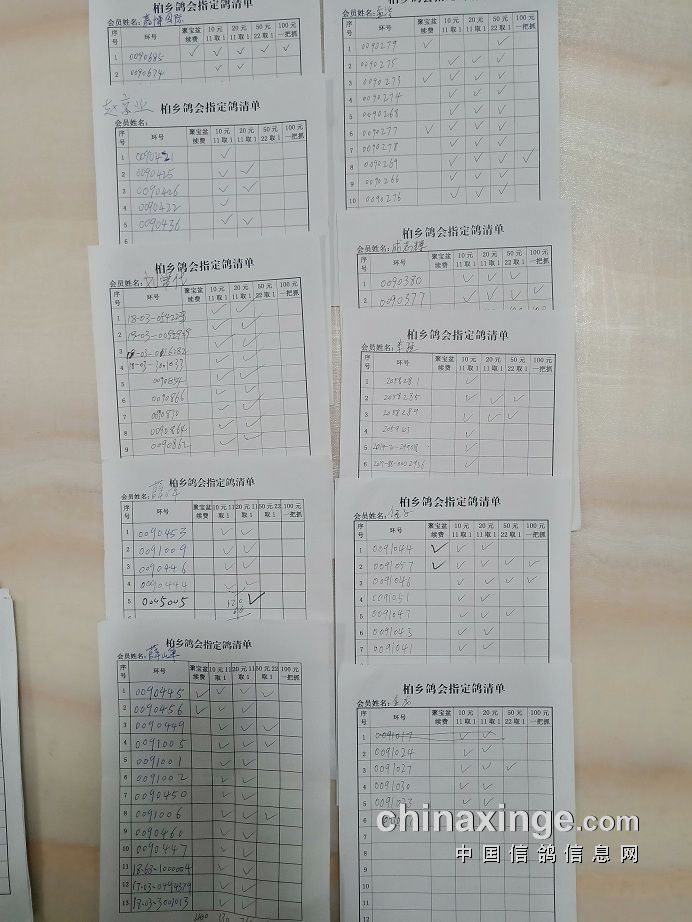 会员姓名:
序号 环号 聚宝盆续费 10元11取1 20元11取1 50元22取1 100元一把抓
1 0090685 ✓ ✓ ✓ ✓ ✓
2 0090674 ✓ ✓
柏乡鸽会指定鸽清单
会员姓名:
序号 环号 聚宝盆续费 10元11取1 20元11取1 50元22取1 100元一把抓
1 0090421 ✓
2 0090425 ✓ ✓
3 0090426 ✓ ✓
4 0090422 ✓
5 0090436 ✓ ✓
6
柏乡鸽会指定鸽清单
会员姓名:
序号 环号 聚宝盆续费 10元11取1 20元11取1 50元22取1 100元一把抓
1
2
3
4 18-03-3001033 ✓ ✓
5
6 0090866 ✓ ✓
7
8 0090864 ✓ ✓
9 0090862 ✓ ✓
柏乡鸽会指定鸽清单
会员姓名:
序号 环号 聚宝盆续费 10元11取1 20元11取1 50元22取1 100元一把抓
1 0090453 ✓ ✓
2 0091009 ✓ ✓
3 0090446 ✓ ✓
4 0090444 ✓ ✓
5 0005005
柏乡鸽会指定鸽清单
会员姓名:
序号 环号 聚宝盆续费 10元11取1 20元11取1 50元22取1 100元一把抓
1 0090445 ✓ ✓ ✓ ✓
2 0090456 ✓ ✓ ✓ ✓
3 0090449 ✓ ✓ ✓
4 0091005 ✓ ✓ ✓
5 0091001 ✓ ✓
6 0091002 ✓ ✓
7 0090450 ✓ ✓
8 0091006 ✓ ✓ ✓
9 0090460 ✓ ✓
10 0090447 ✓ ✓
11 18-68-1000004 ✓ ✓
12 17-03-0494379 ✓ ✓
13 18-03-3001013 ✓ ✓
会员姓名:
序号 环号 聚宝盆续费 10元11取1 20元11取1 50元22取1 100元一把抓
1 0090279 ✓ ✓
2 0090275 ✓ ✓ ✓
3 0090273 ✓ ✓ ✓ ✓
4 0090274 ✓ ✓ ✓
5 0090268 ✓ ✓ ✓
6 0090277 ✓ ✓ ✓ ✓
7 0090278 ✓ ✓ ✓
8 0090269 ✓ ✓ ✓ ✓
9 0090266 ✓ ✓ ✓
10 0090276 ✓ ✓ ✓
柏乡鸽会指定鸽清单
会员姓名:
序号 环号 聚宝盆续费 10元11取1 20元11取1 50元22取1 100元一把抓
1 0090380 ✓ ✓ ✓
2 0090577 ✓ ✓ ✓ ✓
柏乡鸽会指定鸽清单
会员姓名:
序号 环号 聚宝盆续费 10元11取1 20元11取1 50元22取1 100元一把抓
1 2058281 ✓
2 2058285 ✓ ✓ ✓
3 2058289 ✓ ✓ ✓
4
5
6
柏乡鸽会指定鸽清单
会员姓名:
序号 环号 聚宝盆续费 10元11取1 20元11取1 50元22取1 100元一把抓
1 0091044 ✓ ✓ ✓
2 0091057 ✓ ✓ ✓ ✓ ✓
3 0091046 ✓ ✓ ✓ ✓
4 0091051 ✓ ✓
5 0091047 ✓ ✓ ✓
6 0091043 ✓ ✓
7 0091041 ✓ ✓
柏乡鸽会指定鸽清单
会员姓名:
序号 环号 聚宝盆续费 10元11取1 20元11取1 50元22取1 100元一把抓
1 0091017 ✓ ✓
2 0091024 ✓ ✓
3 0091027 ✓ ✓ ✓
4 0091030 ✓ ✓
5 0091023 ✓ ✓
6
chinaxinge.com
中国信鸽信息网